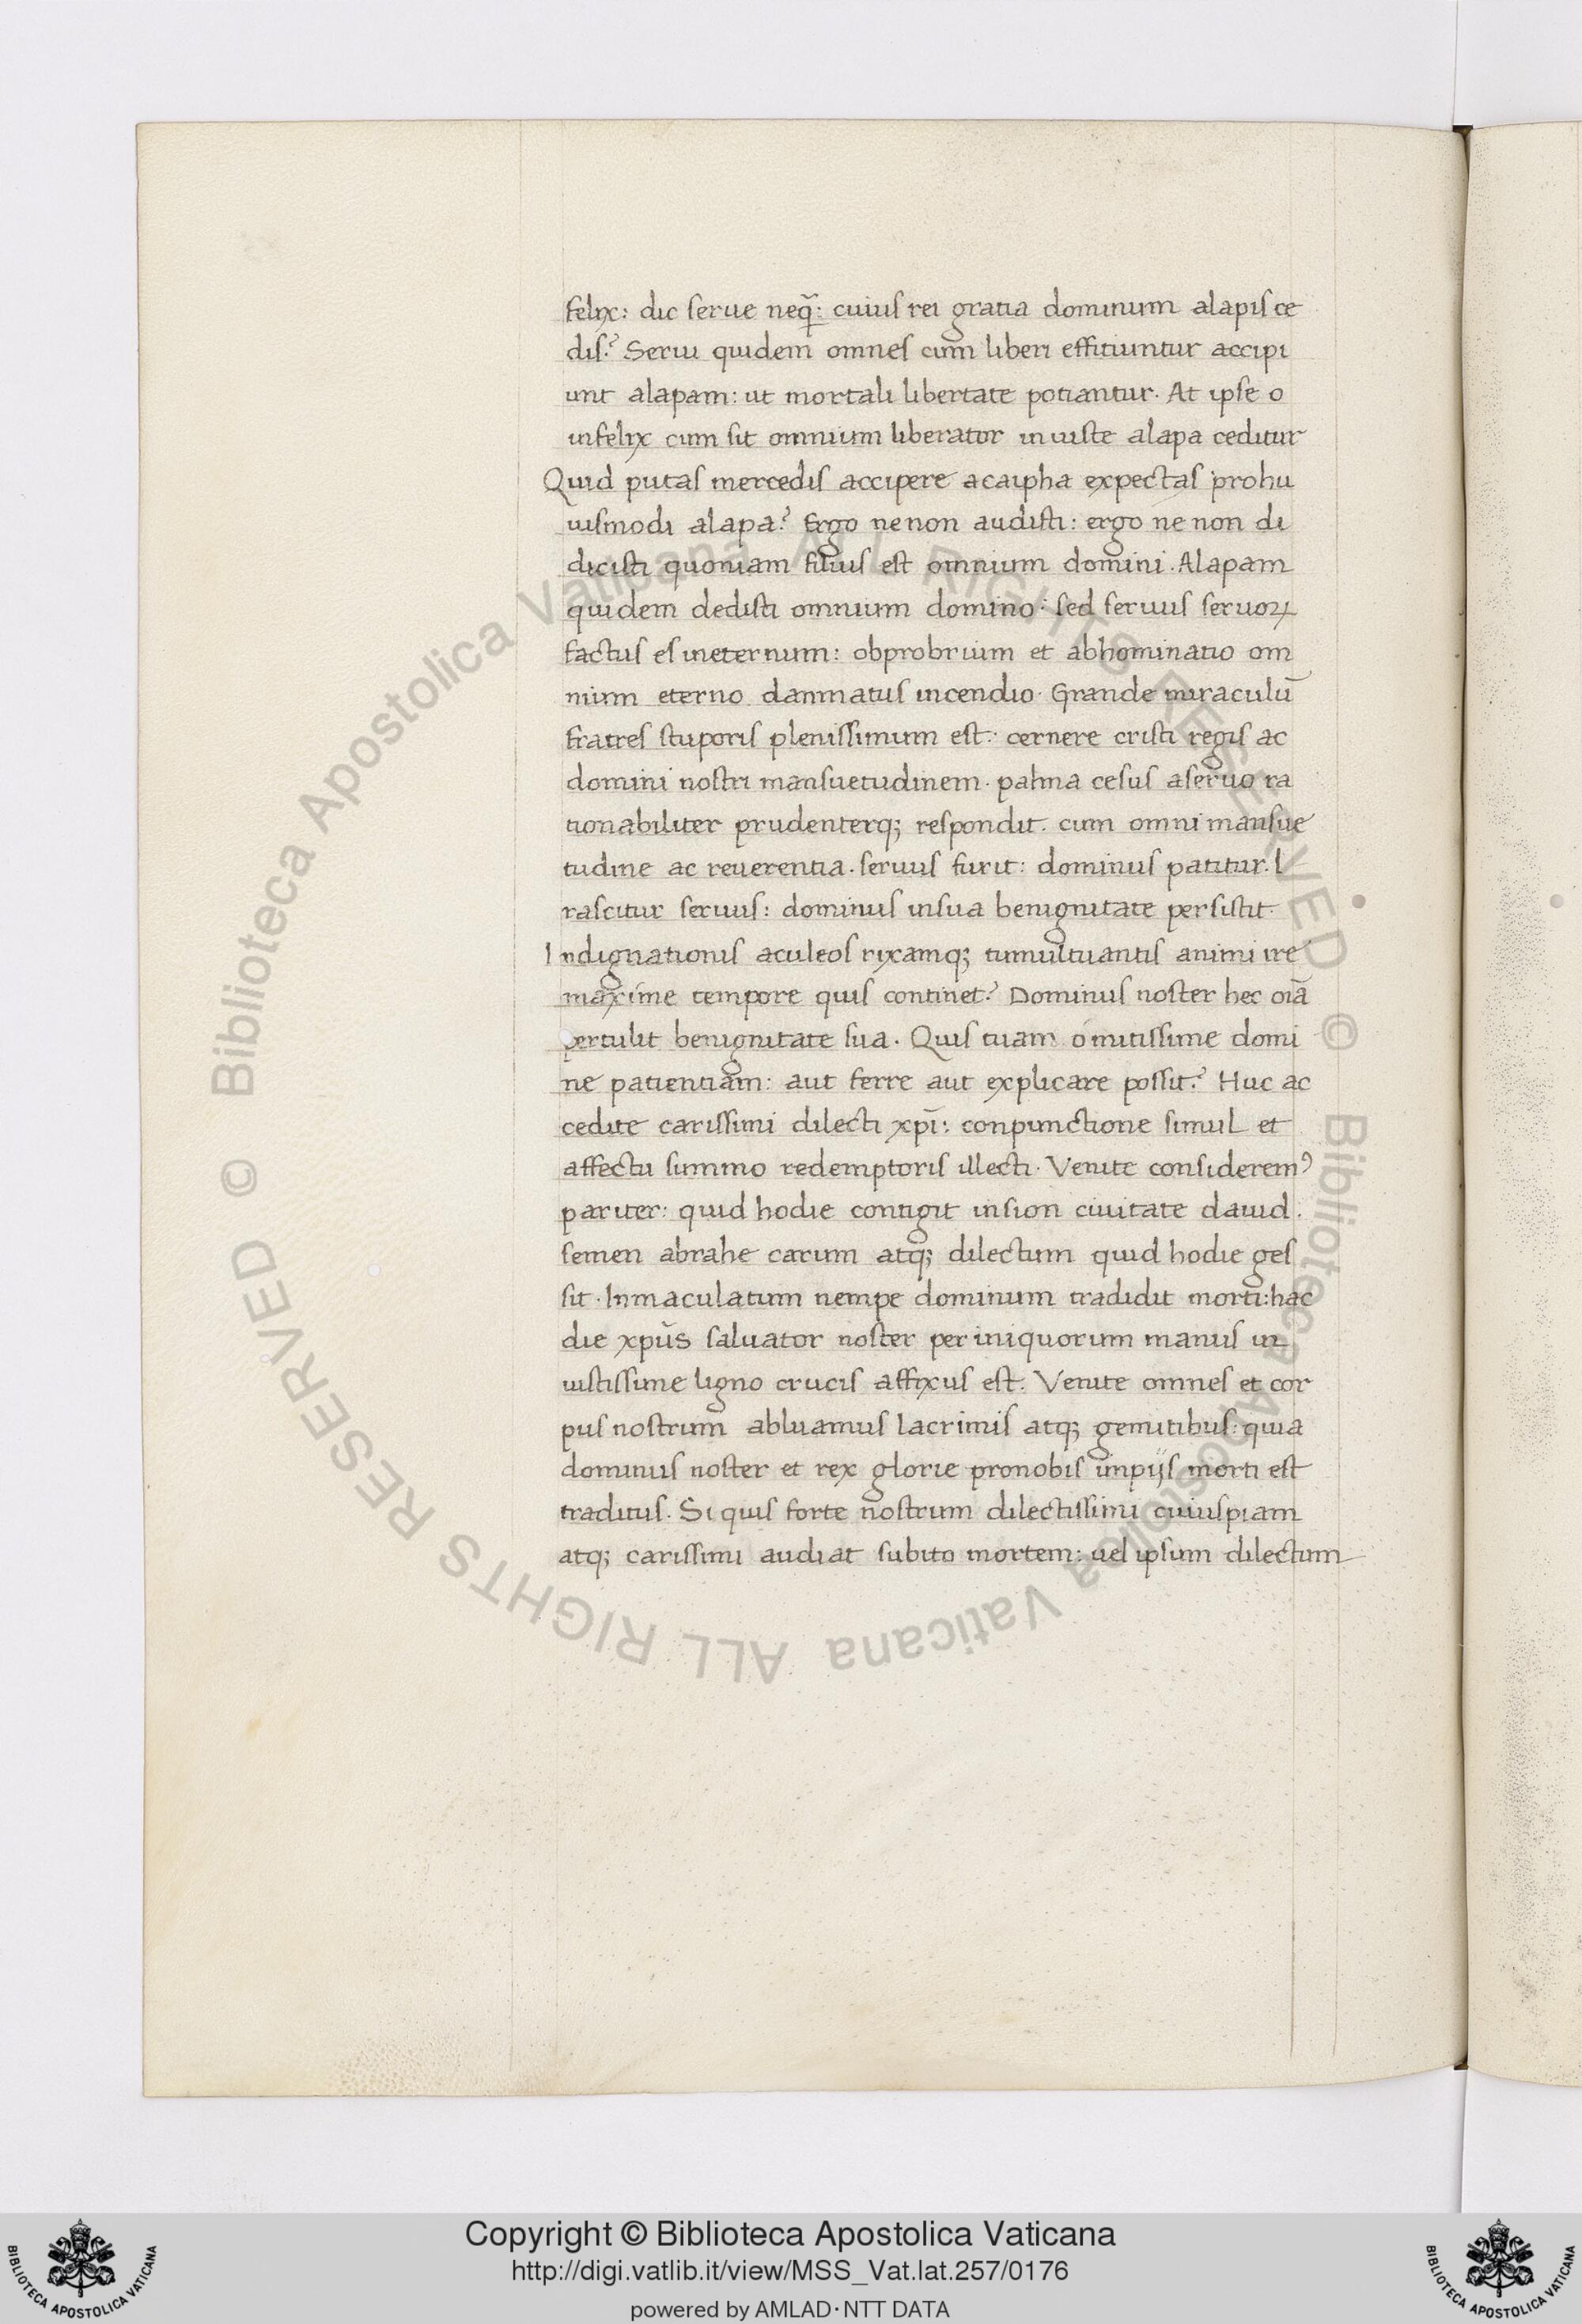 felix: dic serue neq̃: cuius rei gratia dominum alapis ce
dis? Serui quidem omnes cum liberi effitiuntur accipi
unt alapam: ut mortali libertate potiantur. At ipse o
infelix cum sit omnium liberator inuiste alapa ceditur
Quid putas mercedis accipere acaipha expectas prohu
iusmodi alapa? Ergo nenon audisti: ergo ne non di
dicisti quoniam filius est omnium domini. Alapam
quidem dedisti omnium domino: sed seruus seruoꝝ
factus es ineternum: obprobrium et abhominatio om
nium eterno damnatus incendio. Grande miraculū
fratres stuporis plenissimum est: cernere cristi regis ac
domini nostri mansuetudinem. palma cesus aseruo ra
tionabiliter prudenterq; respondit. cum omni mansue
tudine ac reuerentia. seruus furit: dominus patitur. I
rascitur seruus: dominus insua benignitate persistit.
Indignationis aculeos rixamq; tumultuantis animi ire
maxime tempore quis continet? Dominus noster hec oīa
pertulit benignitate sua. Quis tuam o mitissime domi
ne patientiam: aut ferre aut explicare possit? Huc ac
cedite carissimi dilecti xp̄i: conpunctione simul et
affectu summo redemptoris illecti. Venite consideremꝰ
pariter: quid hodie contigit insion ciuitate dauid.
semen abrahe carum atq; dilectum quid hodie ges
sit. Inmaculatum nempe dominum tradidit morti: hac
die xp̄us saluator noster per iniquorum manus in
iustissime ligno crucis affixus est. Venite omnes et cor
pus nostrum abluamus lacrimis atq; gemitibus: quia
dominus noster et rex glorie pronobis impijs morti est
traditus. Si quis forte nostrum dilectissimi cuiuspiam
atq; carissimi audiat subito mortem: uel ipsum dilectum
© Biblioteca Apostolica Vaticana ALL RIGHTS RESERVED
© Biblioteca Apostolica Vaticana ALL RIGHTS RESERVED
Copyright © Biblioteca Apostolica Vaticana
http://digi.vatlib.it/view/MSS_Vat.lat.257/0176
powered by AMLAD·NTT DATA
BIBLIOTECA APOSTOLICA VATICANA
BIBLIOTECA APOSTOLICA VATICANA